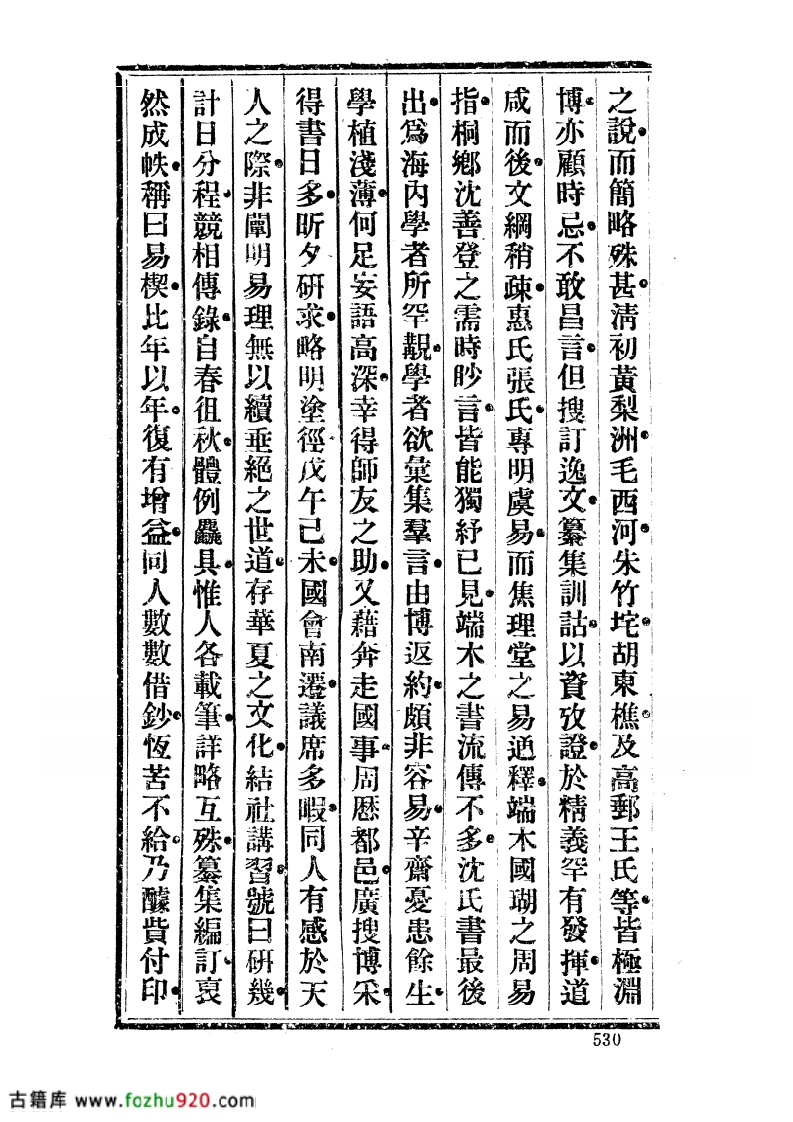 之說而簡略殊甚淸初黃梨洲毛西河朱竹垞胡東樵及高郵王氏等皆極淵
博亦顧時忌不敢昌言但搜訂逸文纂集訓詁以資攷證於精義罕有發揮道
咸而後文綱稍疎惠氏張氏專明虞易而焦理堂之易通釋端木國瑚之周易
指桐鄉沈善登之需時眇言皆能獨紓已見端木之書流傳不多沈氏書最後
出爲海內學者所罕覯學者欲彙集羣言由博返約頗非容易辛齋憂患餘生
學植淺薄何足妄語高深幸得師友之助又藉奔走國事周歷都邑廣搜博采
得書日多昕夕研求略明塗徑戊午己未國會南遷議席多暇同人有感於天
人之際非闡明易理無以續垂絕之世道存華夏之文化結社講習號曰硏幾
計日分程競相傳錄自春徂秋體例麤具惟人各載筆詳略互殊纂集編訂裒
然成帙稱曰易楔比年以年復有增益同人數數借鈔恆苦不給乃醵貲付印
530
古籍库 www.fozhu920.com